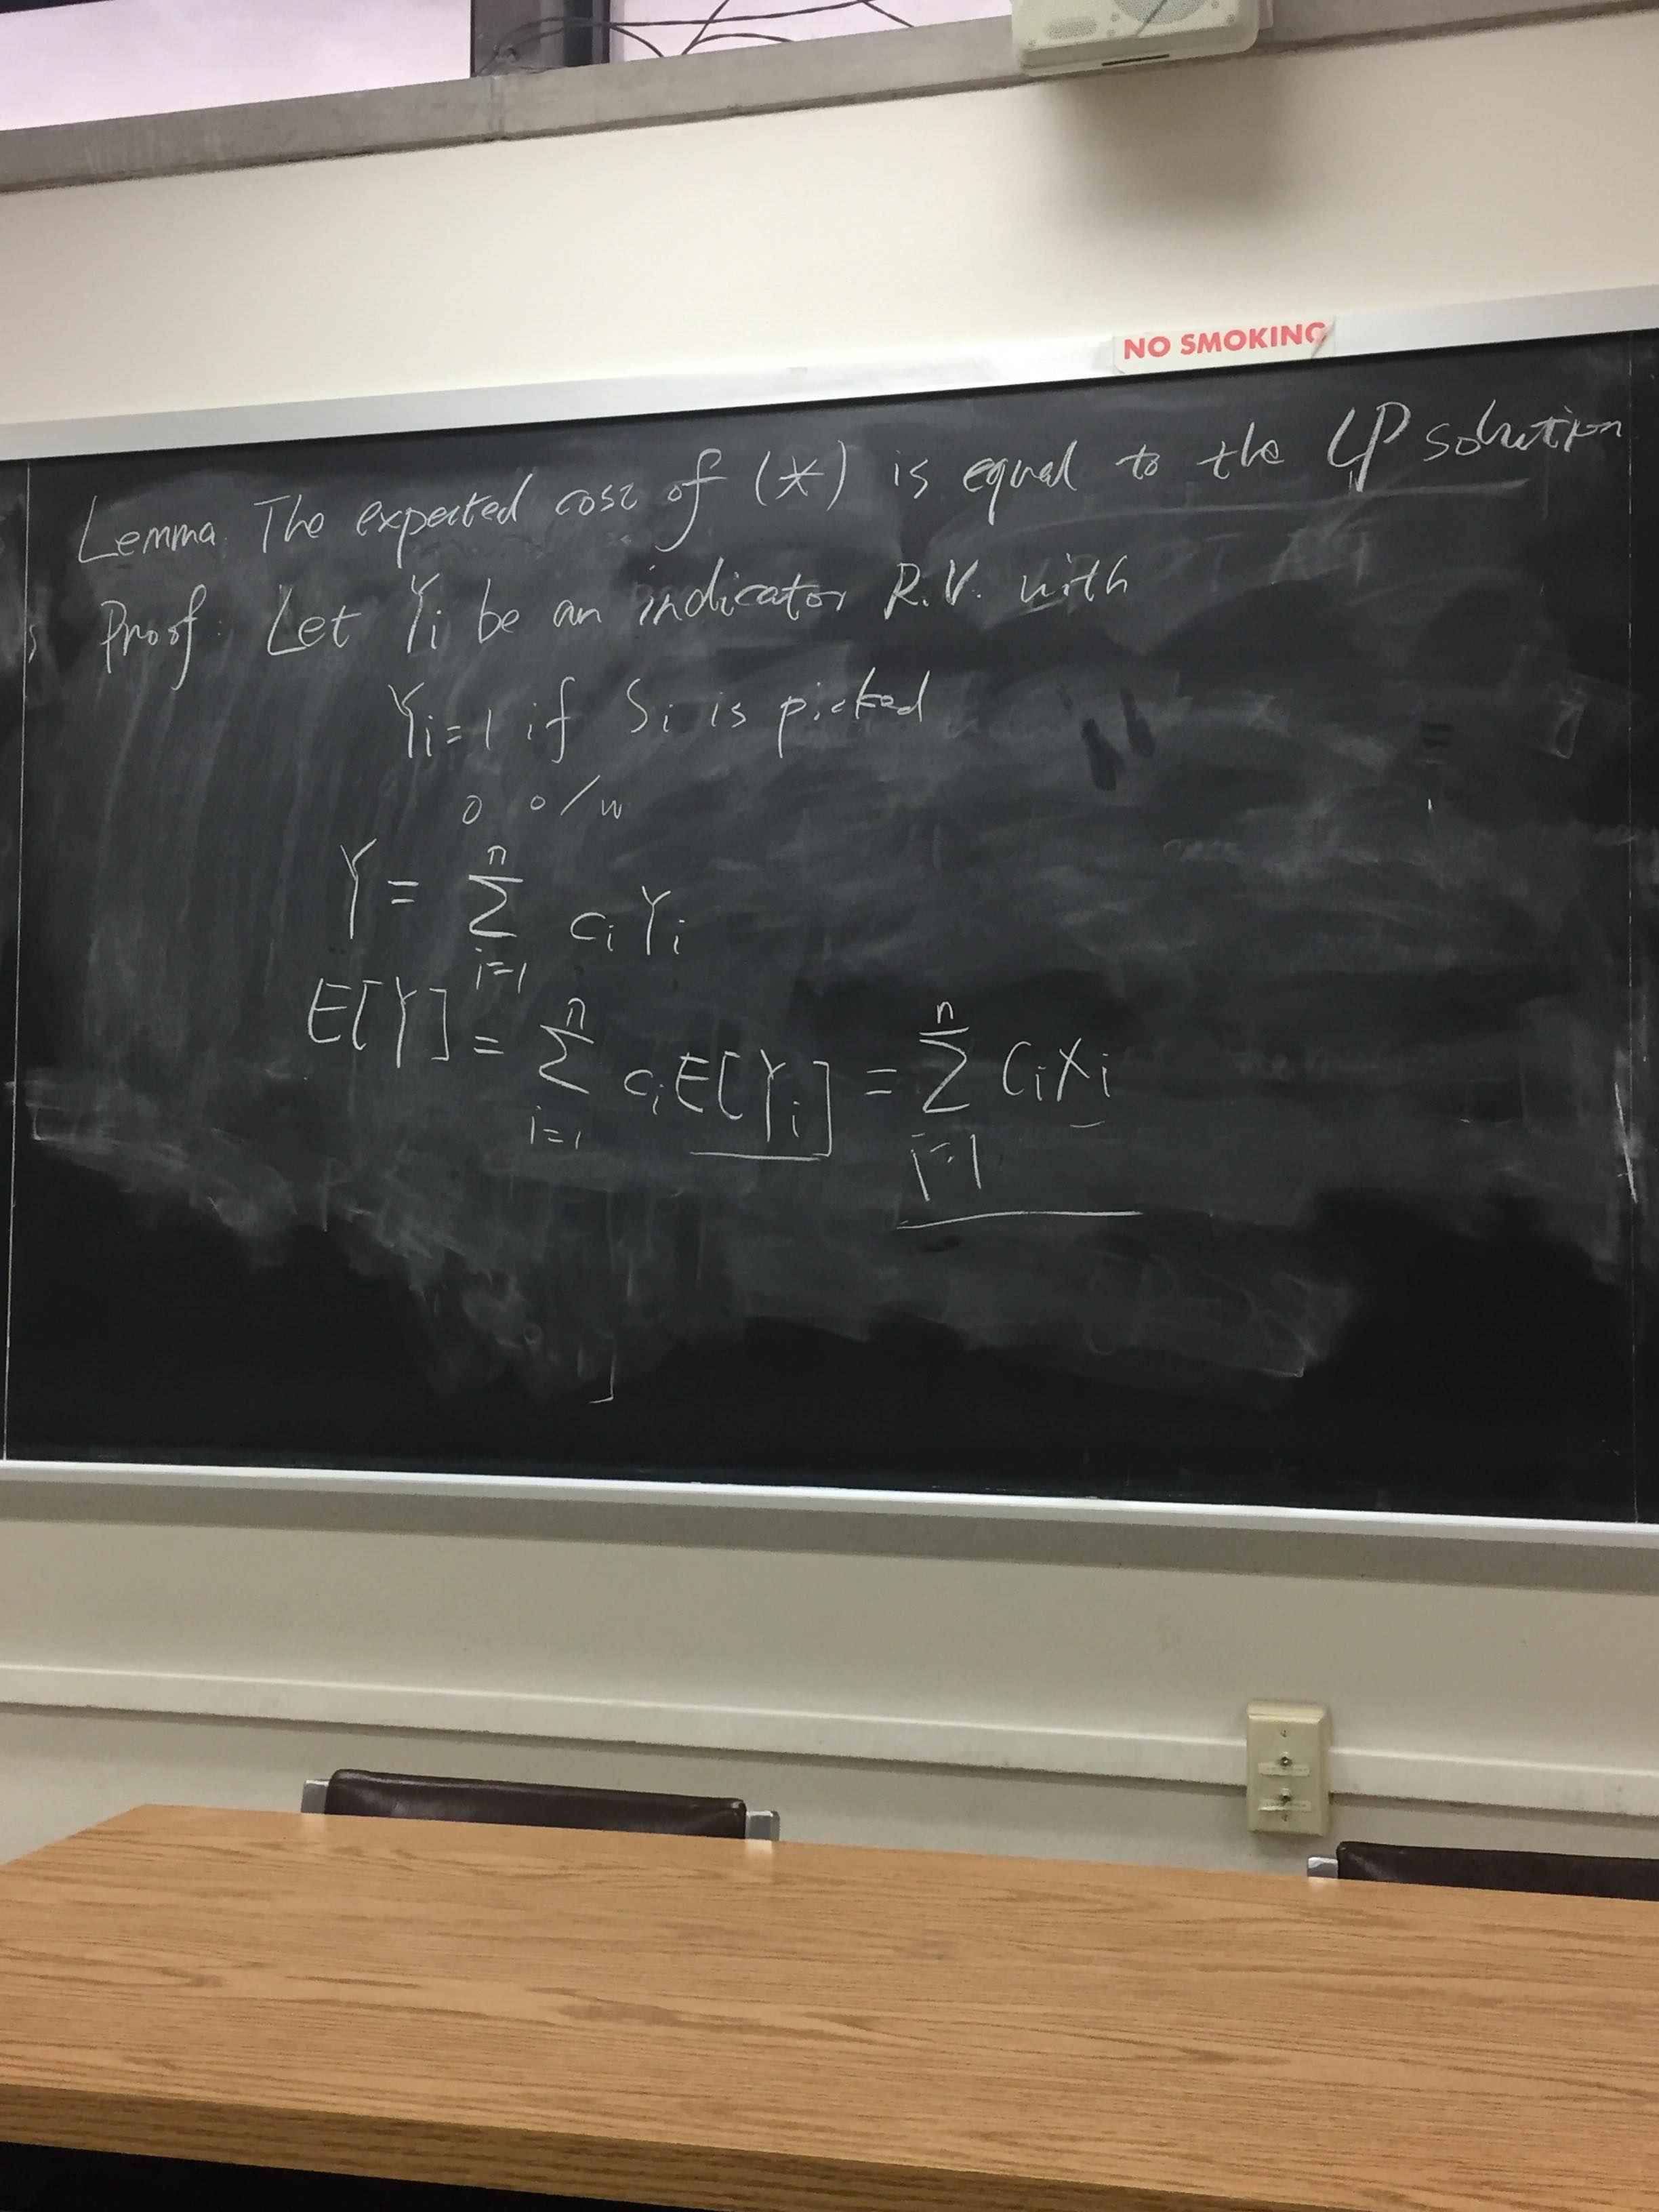 NO SMOKING
Lemma. The expected cost of (*) is equal to the LP solution
Proof: Let Yi be an indicator R.V. with
Yi=1 if Si is picked
0 o/w
Y = ∑_{i=1}^{n} ci Yi
E[Y] = ∑_{i=1}^{n} ci E[Yi] = ∑_{i=1}^{n} ci xi